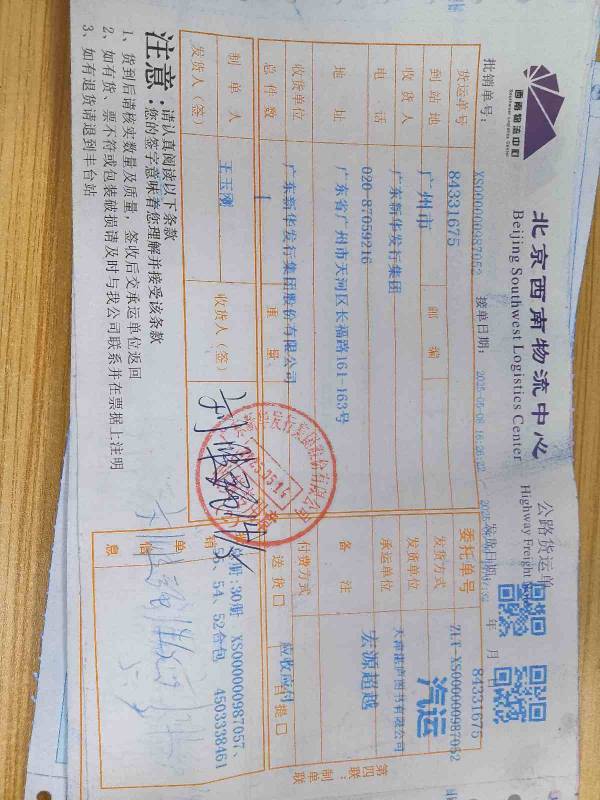 西南物流中心
北京西南物流中心
Beijing Southwest Logistics Center
公路货运单
Highway Freight
批销单号: XS000000987052 接单日期: 2025-05-08 16:26:22 发货日期: 年 月
货运单号 84331675 委托单号 84331675
ZLH-XS000000987052
到站地 广州市 邮编 发货方式 汽运
收货人 广东新华发行集团 发货单位
电话 020-87059216 承运单位 宏源超越
地址 广东省广州市天河区长福路161-163号 备注
收货单位 广东新华发行集团股份有限公司 付费方式 应收应付
总件数 1 重量 送货口 自提口
制单人 王玉刚 收货人(签)
发货人(签)
册:30册 XS000000987057、
55、54、52合包 4503338461
单信息
第四联 制单联
注意:
请认真阅读以下条款
您的签字意味着您理解并接受该条款
1、货到后请核实数量及质量,签收后交承运单位返回
2、如有货、票不符或包装破损请及时与我公司联系并在票据上注明
3、如有退货请退到丰台站